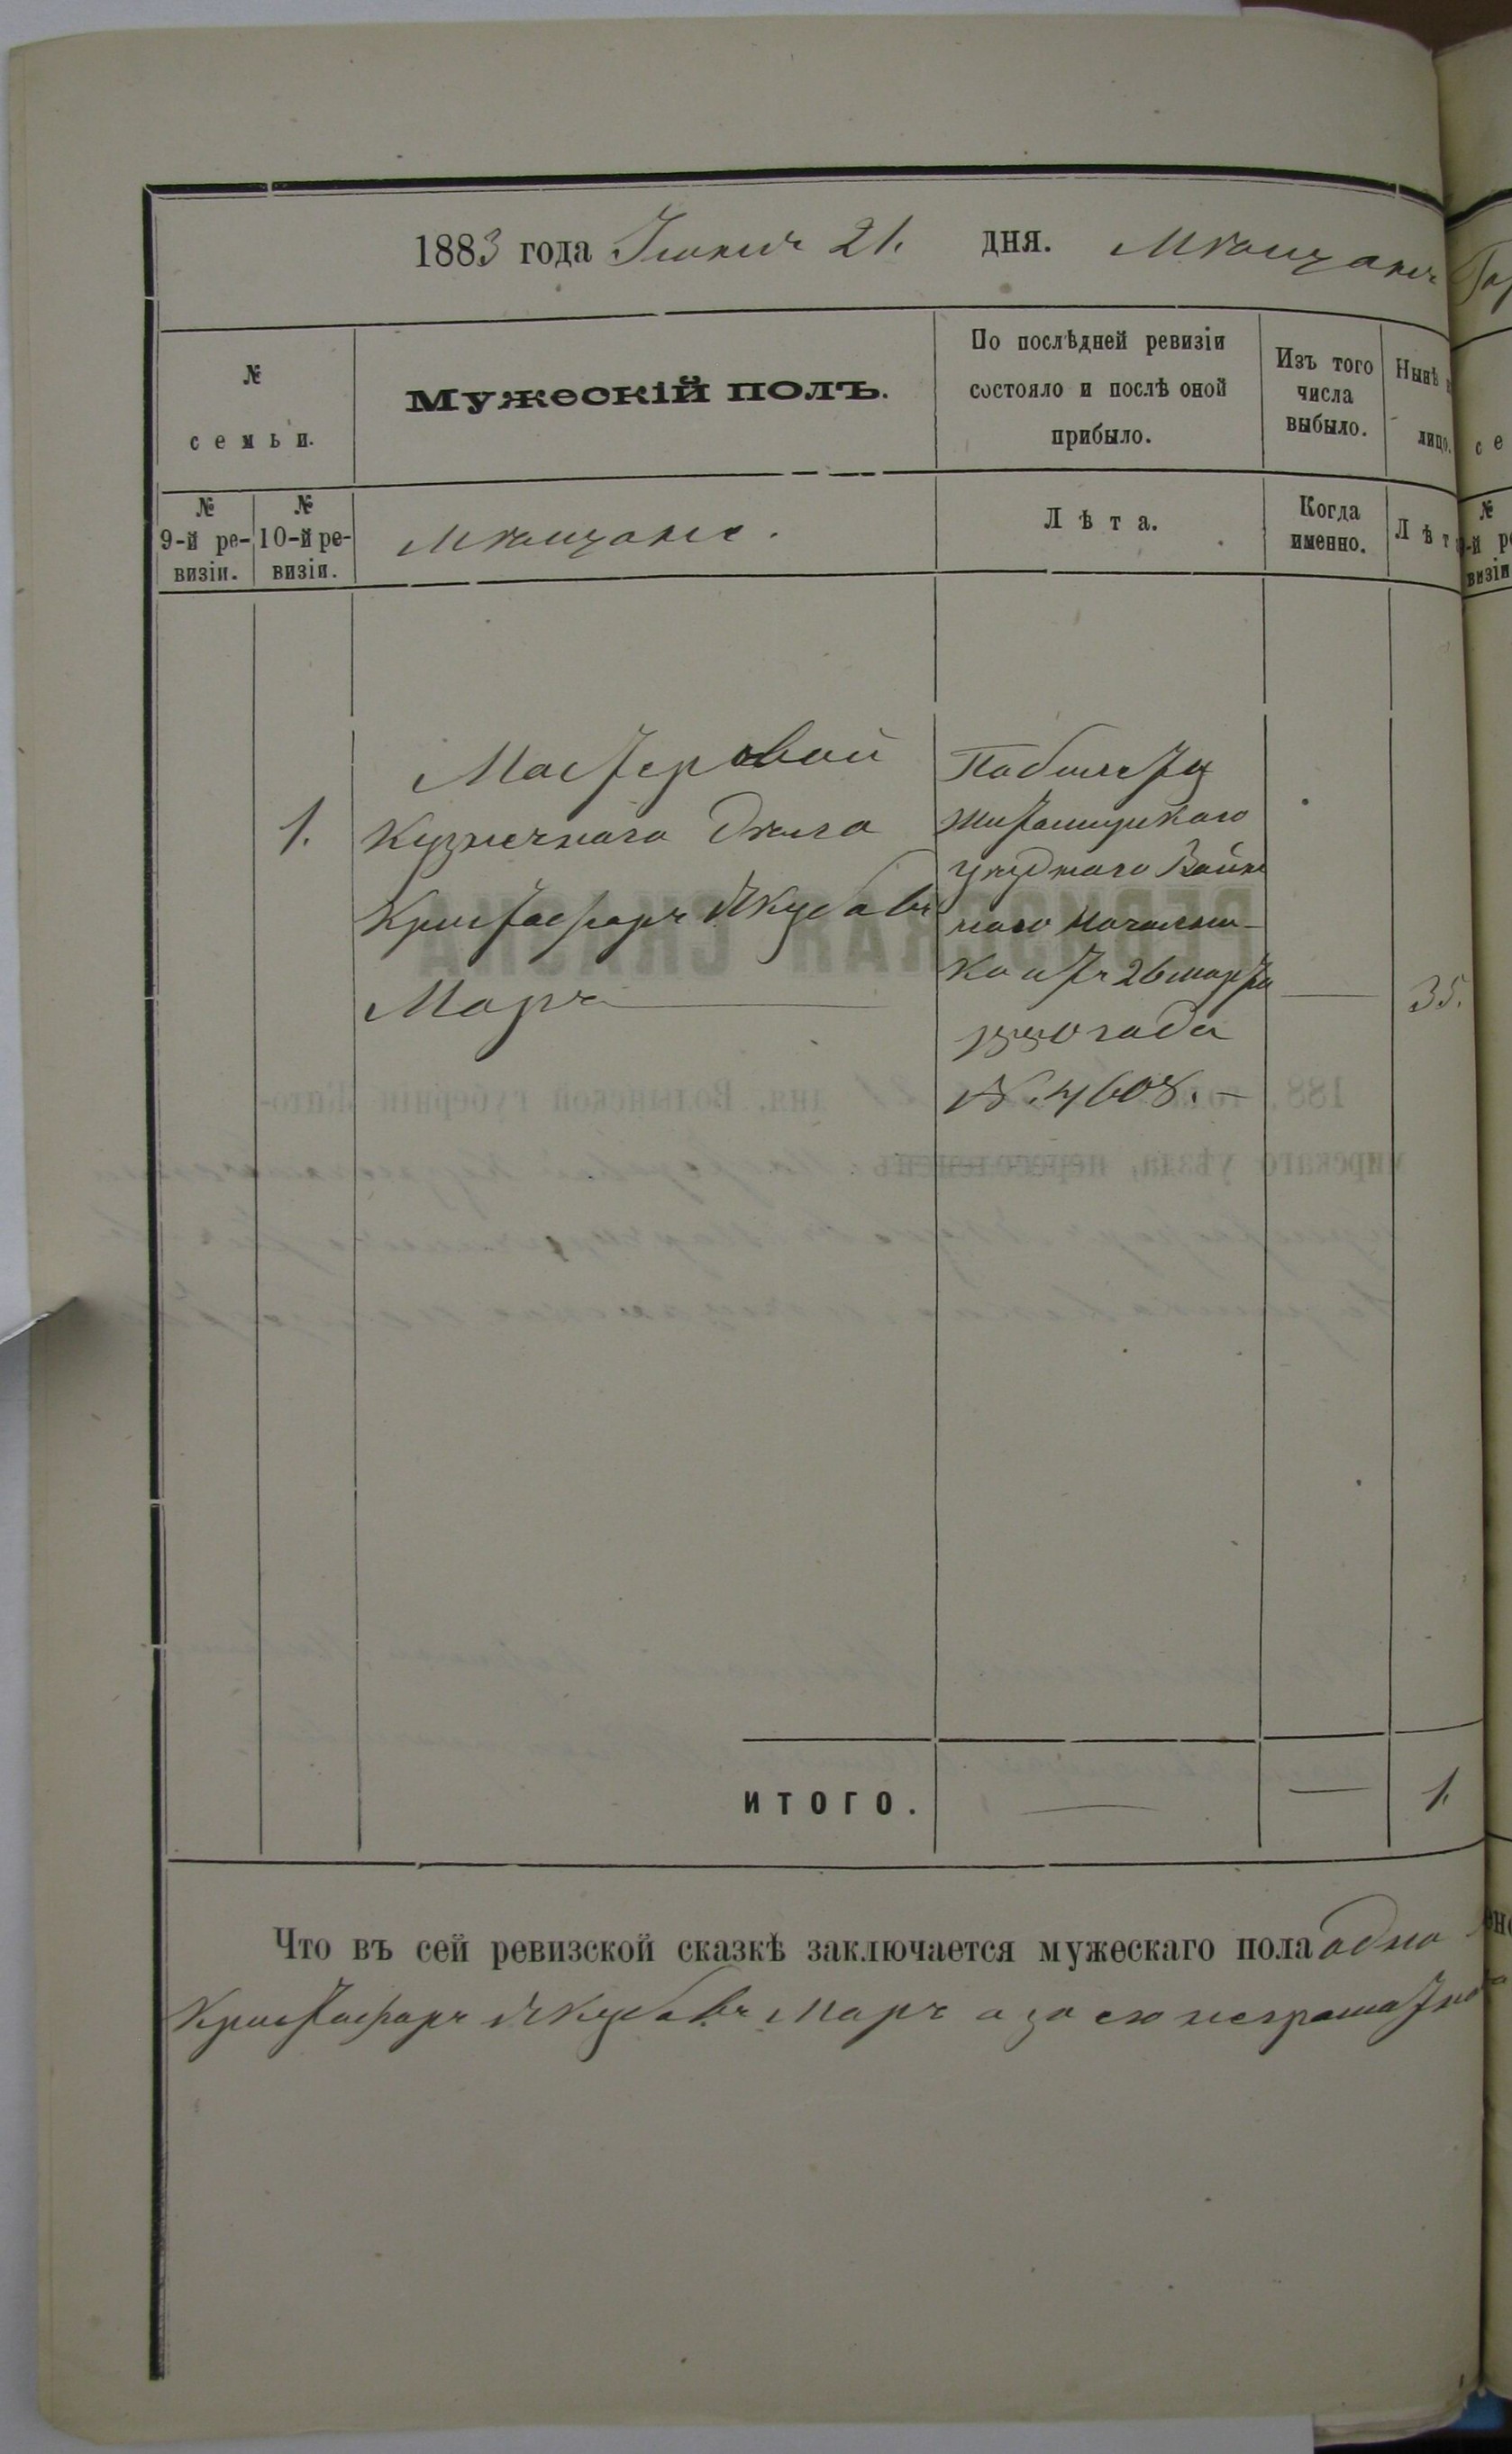 1883 года Іюня 21. дня. Мѣщанъ
№
семьи.
Мужескій полъ.
По послѣдней ревизіи
состояло и послѣ оной
прибыло.
Изъ того
числа
выбыло.
Нынѣ
лицо.
№
9-й ре-
визіи.
№
10-й ре-
визіи.
Мѣщане.
Лѣта.
Когда
именно.
Лѣт
1.
Мастеровой
Кузнечнаго дѣла
Кристафоръ Якубовъ
Маръ
По билету
Житомирскаго
уѣзднаго Воин
наго Начальни-
ка отъ 26 марта
года
№ 4608.
35.
ИТОГО.
1.
Что въ сей ревизской сказкѣ заключается мужескаго пола одна
Кристафоръ Якубовъ Маръ а за его